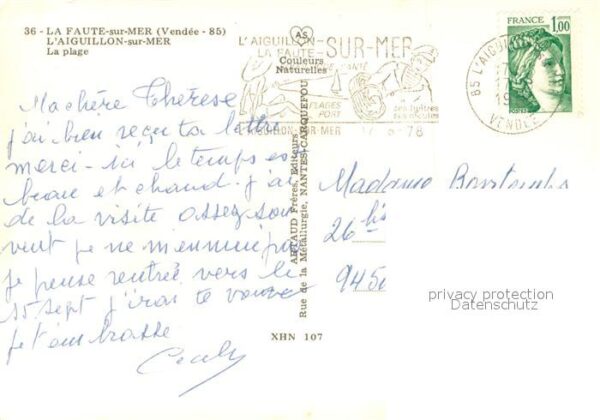 36 - LA FAUTE-sur-MER (Vendée - 85)
L'AIGUILLON-sur-MER
La plage
AS
Couleurs
Naturelles
L'AIGUILLON-SUR-MER
LA FAUTE-
PLAGES
PORT
ses huîtres
ses moules
L'AIGUILLON-SUR-MER
8-78
FRANCE
1,00
85 L'AIGUI
VENDEE
Ma chère Thérèse
j'ai bien reçu ta lettre
merci - ici le temps est
beau et chaud. j'ai
de la visite assez sou
vent je ne m'ennuie pas
je pense rentrée vers le
15 sept j'irai te voir
je t'embrasse
Cecily
ARTAUD Frères, Editeurs
Rue de la Métallurgie, NANTES-CARQUEFOU
XHN 107
Madame
26 bis
945
privacy protection
Datenschutz